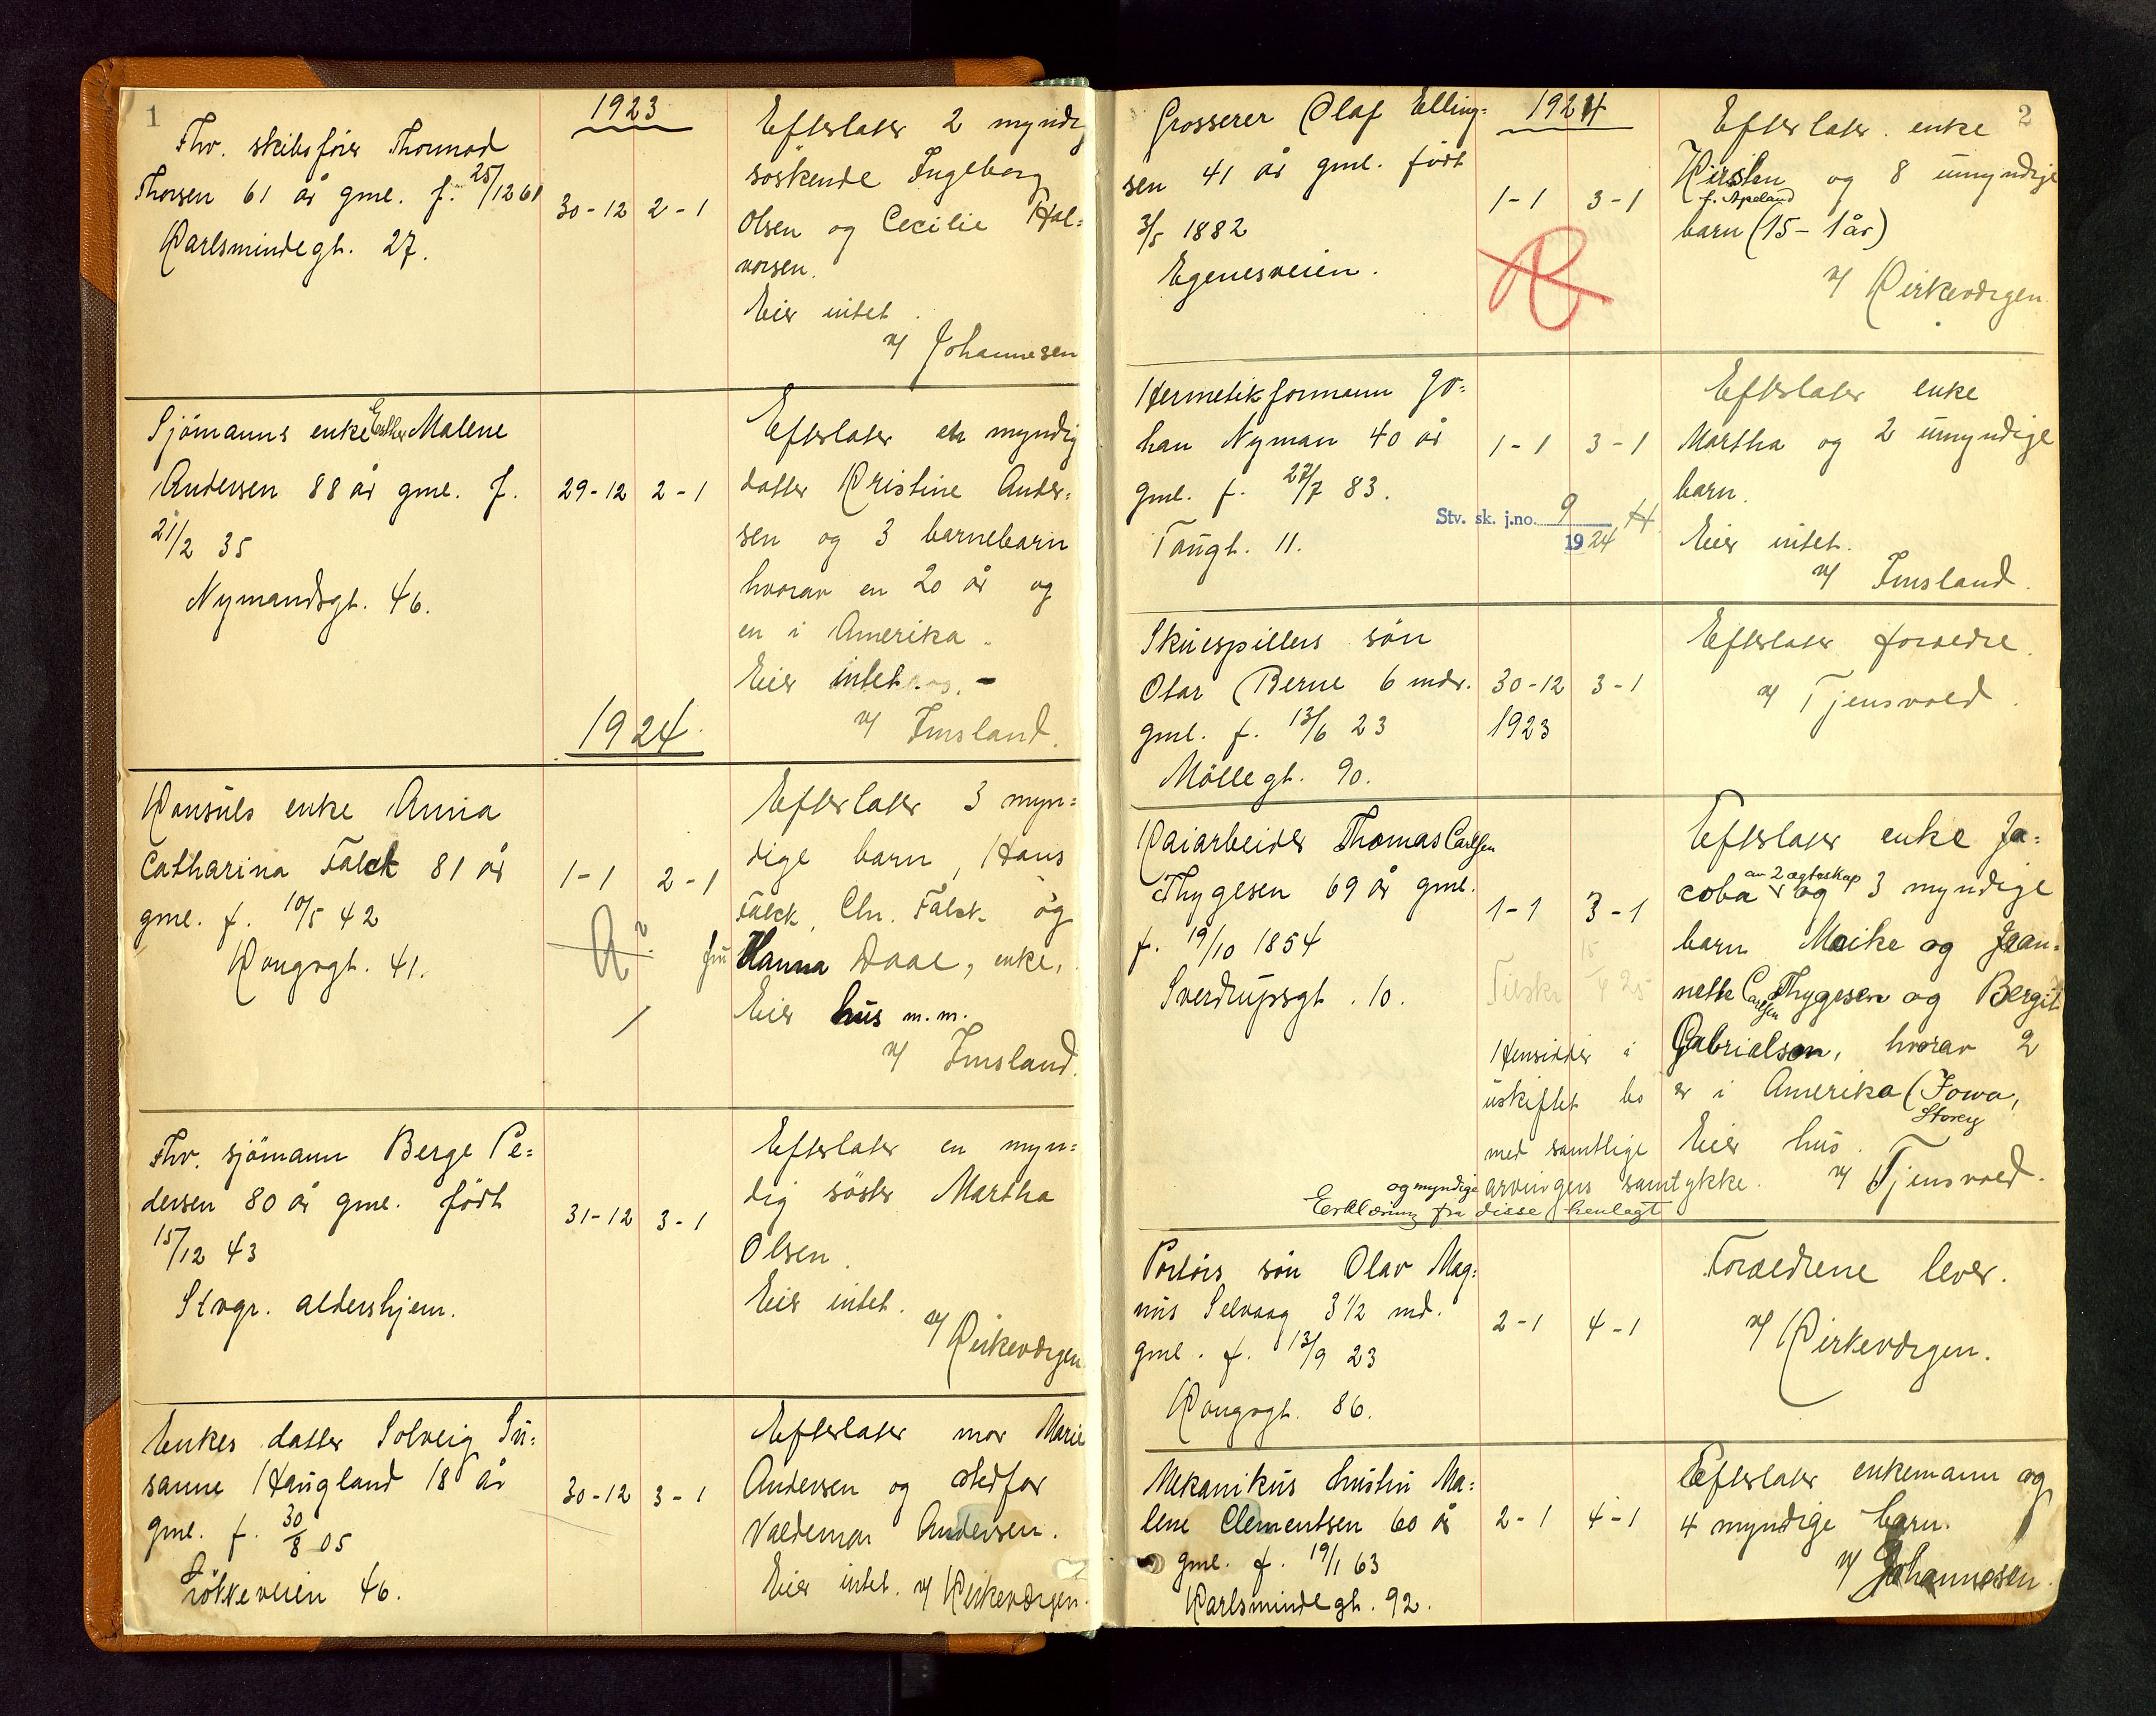 1
1923
Fhv. skibsfører Thormod
Thorsen 61 år gml. f. 25/12 61
Karlsmindegt. 27.
30-12 2-1
Efterlater 2 myndig
søskende Ingeborg
Olsen og Cecilie Hal=
vorsen.
Eier intet.
v/ Johannesen
Sjømanns enke Esther Malene
Andersen 88 år gml. f.
21/2 35
Nymandsgt. 46.
29-12 2-1
Efterlater en myndig
datter Kristine Ander=
sen og 3 barnebarn
hvorav en 20 år og
en i Amerika.
Eier intet. -
v/ Imsland.
1924.
Konsuls enke Anna
Catharina Falck 81 år
gml. f. 10/5 42
Kongsgt. 41.
1-1 2-1
Efterlater 3 myn=
dige barn, Hans
Falck, Chr. Falck og
fru Hanna Daae, enke.
Eier hus m.m.
v/ Imsland.
Fhv. sjømann Berge Pe=
dersen 80 år gml. født
15/12 43
Stvgr. aldershjem.
31-12 3-1
Efterlater en myn=
dig søster Martha
Olsen.
Eier intet.
v/ Kirkevergen
Enkes datter Solveig Su=
sanne Haugland 18 år
gml. f. 30/8 05
Løkkeveien 46.
30-12 3-1
Efterlater mor Marie
Andersen og stedfar
Valdemar Andersen.
Eier intet. v/ Kirkevergen.
2
1924
Grosserer Olaf Elling=
sen 41 år gml. født
3/5 1882
Egenesveien.
1-1 3-1
Efterlater enke
Kirsten og 8 umyndige
f. Apeland
barn (15 - 1 år)
v/ Kirkevergen
Hermetikformann Jo=
han Nyman 40 år
gml. f. 27/7 83.
Taugt. 11.
1-1 3-1
Stv. sk. j.no. 9 H
1924
Efterlater enke
Martha og 2 umyndige
barn.
Eier intet.
v/ Imsland.
Skuespillers søn
Otar Berne 6 mdr.
gml. f. 13/6 23
Møllegt. 90.
30-12 3-1
1923
Efterlater forældre.
v/ Tjensvold.
Kaiarbeider Thomas Carlsen
Thygesen 69 år gml.
f. 19/10 1854
Sverdrupsgt. 10.
1-1 3-1
15
4 25
Hensidder i
uskiftet bo
med samtlige
og myndige arvingers samtykke.
Erklæring fra disse henlagt
Efterlater enke Ja=
coba av 2 ægteskap og 3 myndige
barn Meike og Jean=
nette Carlsen Thygesen og Bergit
Gabrielsen, hvorav 2
er i Amerika (Iowa,
Storey
Eier hus.
v/ Tjensvold.
Portørs søn Olav Mag=
nus Selvaag 3 1/2 md.
gml. f. 13/9 23
Kongsgt. 86.
2-1 4-1
Forældrene lever.
v/ Kirkevergen.
Mekanikus hustru Ma=
lene Clementsen 60 år
gml. f. 19/1 63
Karlsmindegt. 92.
2-1 4-1
Efterlater enkemann og
4 myndige barn.
v/ Johannesen.